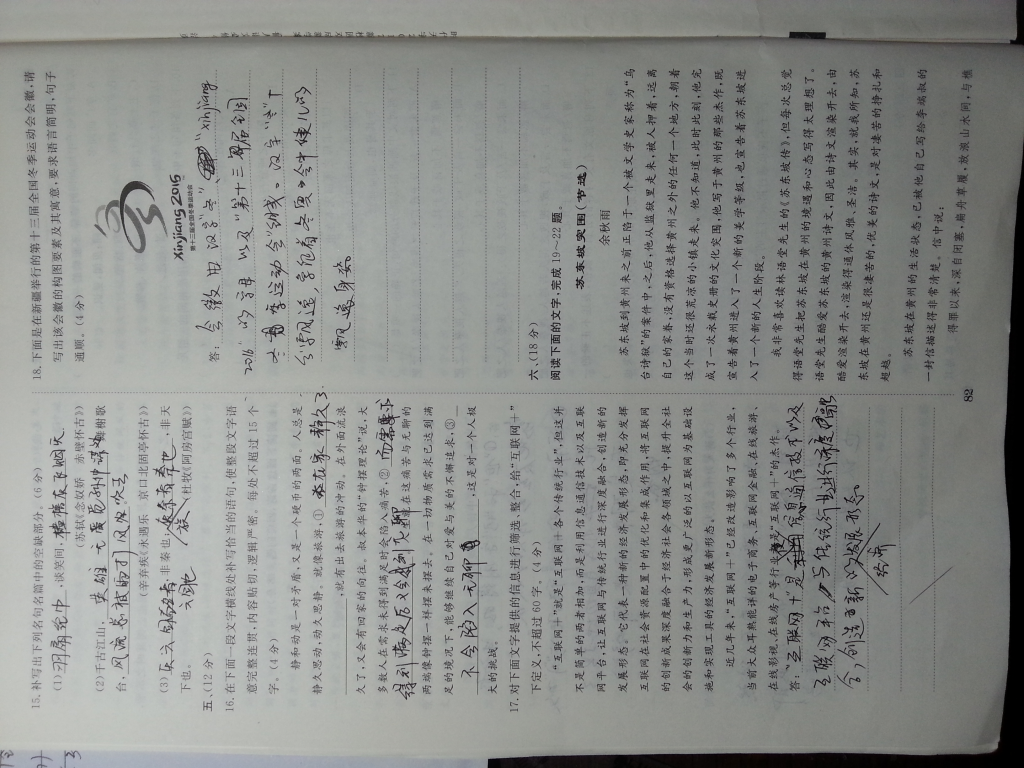 15.补写出下列名句名篇中的空缺部分。(6分)
(1)羽扇纶巾,谈笑间,樯橹灰飞烟灭。
(苏轼《念奴娇 赤壁怀古》)
(2)千古江山,英雄无觅孙仲谋处。舞榭歌
台,风流总被雨打风吹去。
(辛弃疾《永遇乐 京口北固亭怀古》)
(3)灭六国者六国也,非秦也;族秦者秦也,非天
下也。
(杜牧《阿房宫赋》)
五、(12分)
16.在下面一段文字横线处补写恰当的语句,使整段文字语
意完整连贯,内容贴切,逻辑严密。每处不超过15个
字。(4分)
静和动是一对矛盾,又是一个硬币的两面。人总是
静久思动动久思静。就像旅游,①在家静久了
,就有出去旅游的冲动,在外面流浪
久了,又会有回家的向往。叔本华的“钟摆理论”说,大
多数人在需求未得到满足时会陷入痛苦,②而需求
得到满足后又会感到无聊,人生就在这痛苦与无聊的
两端像钟摆一样摆来摆去。在一切物质需求已达到满
足的境况下,能够继续自己对爱与美的不懈追求,③
不会陷入无聊,这是对一个人极
大的挑战。
17.对下面文字提供的信息进行筛选、整合,给“互联网+”
下定义,不超过60字。(4分)
“互联网+”就是“互联网+各个传统行业”,但这并
不是简单的两者相加,而是利用信息通信技术以及互联
网平台,让互联网与传统行业进行深度融合,创造新的
发展形态。它代表一种新的经济发展形态,即充分发挥
互联网在社会资源配置中的优化和集成作用,将互联网
的创新成果深度融合于经济社会各领域之中,提升全社
会的创新力和生产力,形成更广泛的以互联网为基础设
施和实现工具的经济发展新形态。
近几年来,“互联网+”已经改造影响了多个行业,
当前大众耳熟能详的电子商务、互联网金融、在线旅游、
在线影视、在线房产等行业都是“互联网+”的杰作。
答:“互联网+”是信息通信技术以及
互联网平台与传统行业进行深度融
合,创造新的发展形态
经济
18.下面是在新疆举行的第十三届全国冬季运动会会徽,请
写出该会徽的构图要素及其寓意,要求语言简明,句子
通顺。(4分)
Xinjiang 2016
第十三届全国冬季运动会
答:会徽由汉字“冬”、“xinjiang
2016”的字母以及“第十三届全国
冬季运动会”组成。汉字“冬”
会飘逸,象征着冬季会中健儿的
飘逸身姿
六、(18分)
阅读下面的文字,完成19~22题。
苏东坡突围(节选)
余秋雨
苏东坡到黄州来之前正陷于一个被文学史家称为“乌
台诗狱”的案件中,之后,他从监狱里走来,被人押着,远离
自己的家眷,没有资格选择黄州之外的任何一个地方,朝着
这个当时还很荒凉的小镇走来。他不知道,此时此刻,他完
成了一次永载史册的文化突围,他写于黄州的那些杰作,既
宣告着黄州进入了一个新的美学等级,也宣告着苏东坡进
入了一个新的人生阶段。
我非常喜欢读林语堂先生的《苏东坡传》,但每次总觉
得语堂先生把苏东坡在黄州的境遇和心态写得太理想了。
语堂先生酷爱苏东坡的黄州诗文,因此由诗文渲染开去,由
酷爱渲染开去,渲染得通体风雅、圣洁。其实,就我所知,苏
东坡在黄州还是很凄苦的,优美的诗文,是对凄苦的挣扎和
超越。
苏东坡在黄州的生活状态,已被他自己写给李端叔的
一封信描述得非常清楚。信中说:
得罪以来,深自闭塞,扁舟草履,放浪山水间,与樵
82